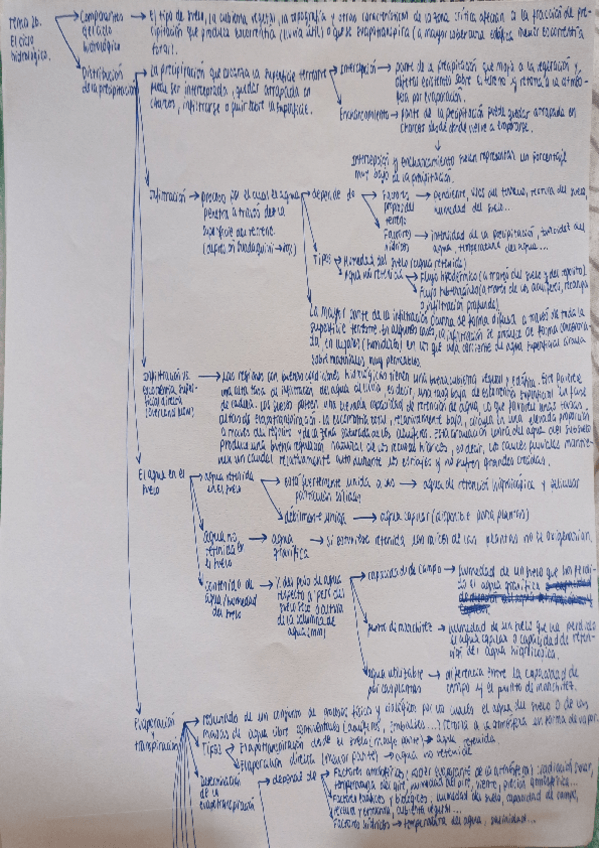 Tema 20.
El ciclo
hidrológico.
Componentes
del ciclo
hidrológico
El tipo de suelo, la cubierta vegetal, la topografía y otras características de la zona crítica afectan a la fracción de pre-
cipitación que produce escorrentía (lluvia útil) o que se evapotranspira (a mayor cobertura edáfica menor escorrentía
Distribución
de la precipitación
La precipitación que alcanza la superficie terrestre
puede ser interceptada, quedar atrapada en
charcos, infiltrarse o fluir sobre la superficie.
Intercepción
parte de la precipitación que moja a la vegetación y
existente sobre el terreno y retorna a la atmós-
fera por evaporación.
Encharcamiento
parte de la precipitación puede quedar atrapada en
charcos desde donde vuelve a evaporarse.
Intercepción y encharcamiento suelen representar un porcentaje
muy bajo de la precipitación.
Infiltración
proceso por el cual el agua
penetra a través de la
superficie del terreno.
depende de
Factores
propios del
terreno
pendiente, usos del terreno, textura del suelo,
humedad del suelo...
Factores
hídricos
intensidad de la precipitación, turbidez del
agua, temperatura del agua...
Tipos
Humedad del suelo (agua retenida)
Agua no retenida
Flujo hipodérmico (a través del suelo y del regolito)
Flujo subterráneo (a través de los acuíferos, recarga
o infiltración profunda)
La mayor parte de la infiltración ocurre de forma difusa a través de toda la
superficie terrestre. En algunos casos, la infiltración se produce de forma concentra-
da, en lugares (humedales) en los que una corriente de agua superficial circula
sobre materiales muy permeables.
Infiltración vs
escorrentía super-
ficial directa
Las regiones con buenas condiciones hidrológicas tienen una buena cubierta vegetal y edáfica. Esto favorece
una alta tasa de infiltración del agua de lluvia, es decir, una tasa baja de escorrentía superficial en la fase
de ladera. Los suelos poseen una elevada capacidad de retención de agua, lo que favorece unas tasas
altas de evapotranspiración. La escorrentía total, relativamente baja, circula en una elevada proporción
a través del regolito y de la zona saturada de los acuíferos. Esta circulación lenta del agua del subsuelo
produce una buena regulación natural de los recursos hídricos, es decir, los cauces fluviales mantie-
nen un caudal relativamente alto durante los estiajes y no sufren grandes crecidas.
El agua en el
suelo
agua retenida
en el suelo
está fuertemente unida a las
partículas sólidas
agua de retención higroscópica y pelicular
débilmente unida
agua capilar (disponible para plantas)
agua no
retenida en
el suelo
agua
gravífica
si estuviese retenida, las raíces de las plantas no se oxigenarían.
contenido de
agua/humedad
del suelo
% del peso de agua
respecto a peso del
suelo seco o altura
de la columna de
agua (mm)
capacidad de campo
humedad de un suelo que ha perdi-
do el agua gravífica
punto de marchitez
humedad de un suelo que ha perdido
el agua capilar o capacidad de reten-
ción del agua higroscópica.
agua utilizable
por las plantas
diferencia entre la capacidad de
campo y el punto de marchitez.
Evaporación
y
transpiración
resultado de un conjunto de procesos físicos y biológicos por los cuales el agua del suelo o de las
masas de agua libre continentales (acuíferos, embalses...) retorna a la atmósfera en forma de vapor.
Tipos
Evapotranspiración desde el suelo (mayor parte)
agua retenida.
Evaporación directa (menor parte)
agua no retenida
Determinación
de la
evapotranspiración
depende de
Factores atmosféricos: poder evaporante de la atmósfera: radiación solar,
temperatura del aire, humedad del aire, viento, presión atmosférica...
Factores edáficos y biológicos: humedad del suelo, capacidad de campo,
textura y estructura, cubierta vegetal...
Factores hídricos
temperatura del agua, salinidad...